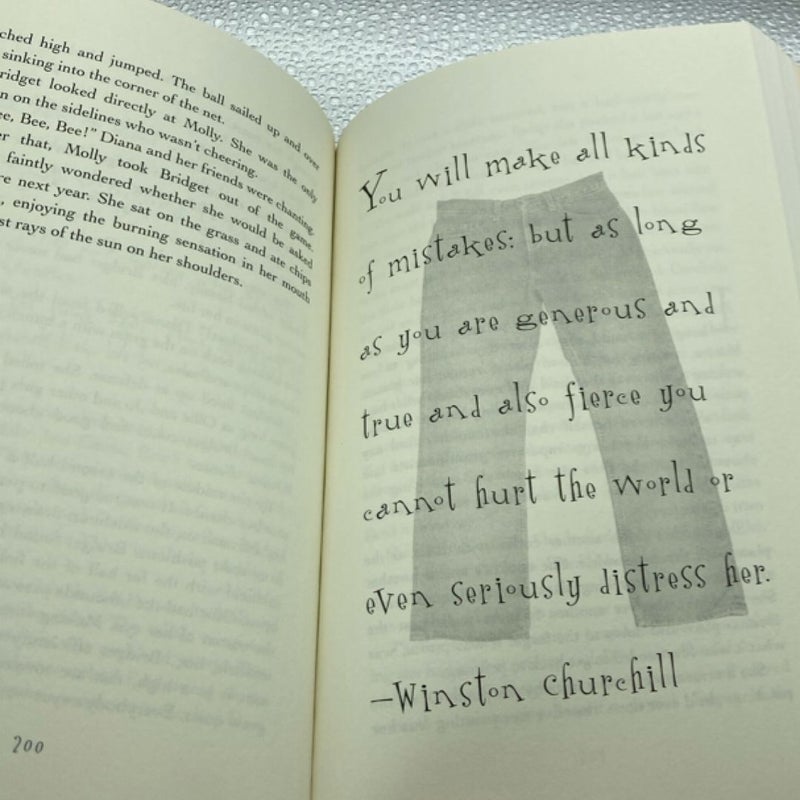 ched high and jumped. The ball sailed up and over
sinking into the corner of the net.
ridget looked directly at Molly. She was the only
n on the sidelines who wasn't cheering.
e, Bee, Bee!" Diana and her friends were chanting.
er that, Molly took Bridget out of the game.
faintly wondered whether she would be asked
re next year. She sat on the grass and ate chips
, enjoying the burning sensation in her mouth
st rays of the sun on her shoulders.
200
You will make all kinds
of mistakes: but as long
as you are generous and
true and also fierce you
cannot hurt the world or
even seriously distress her.
—Winston Churchill